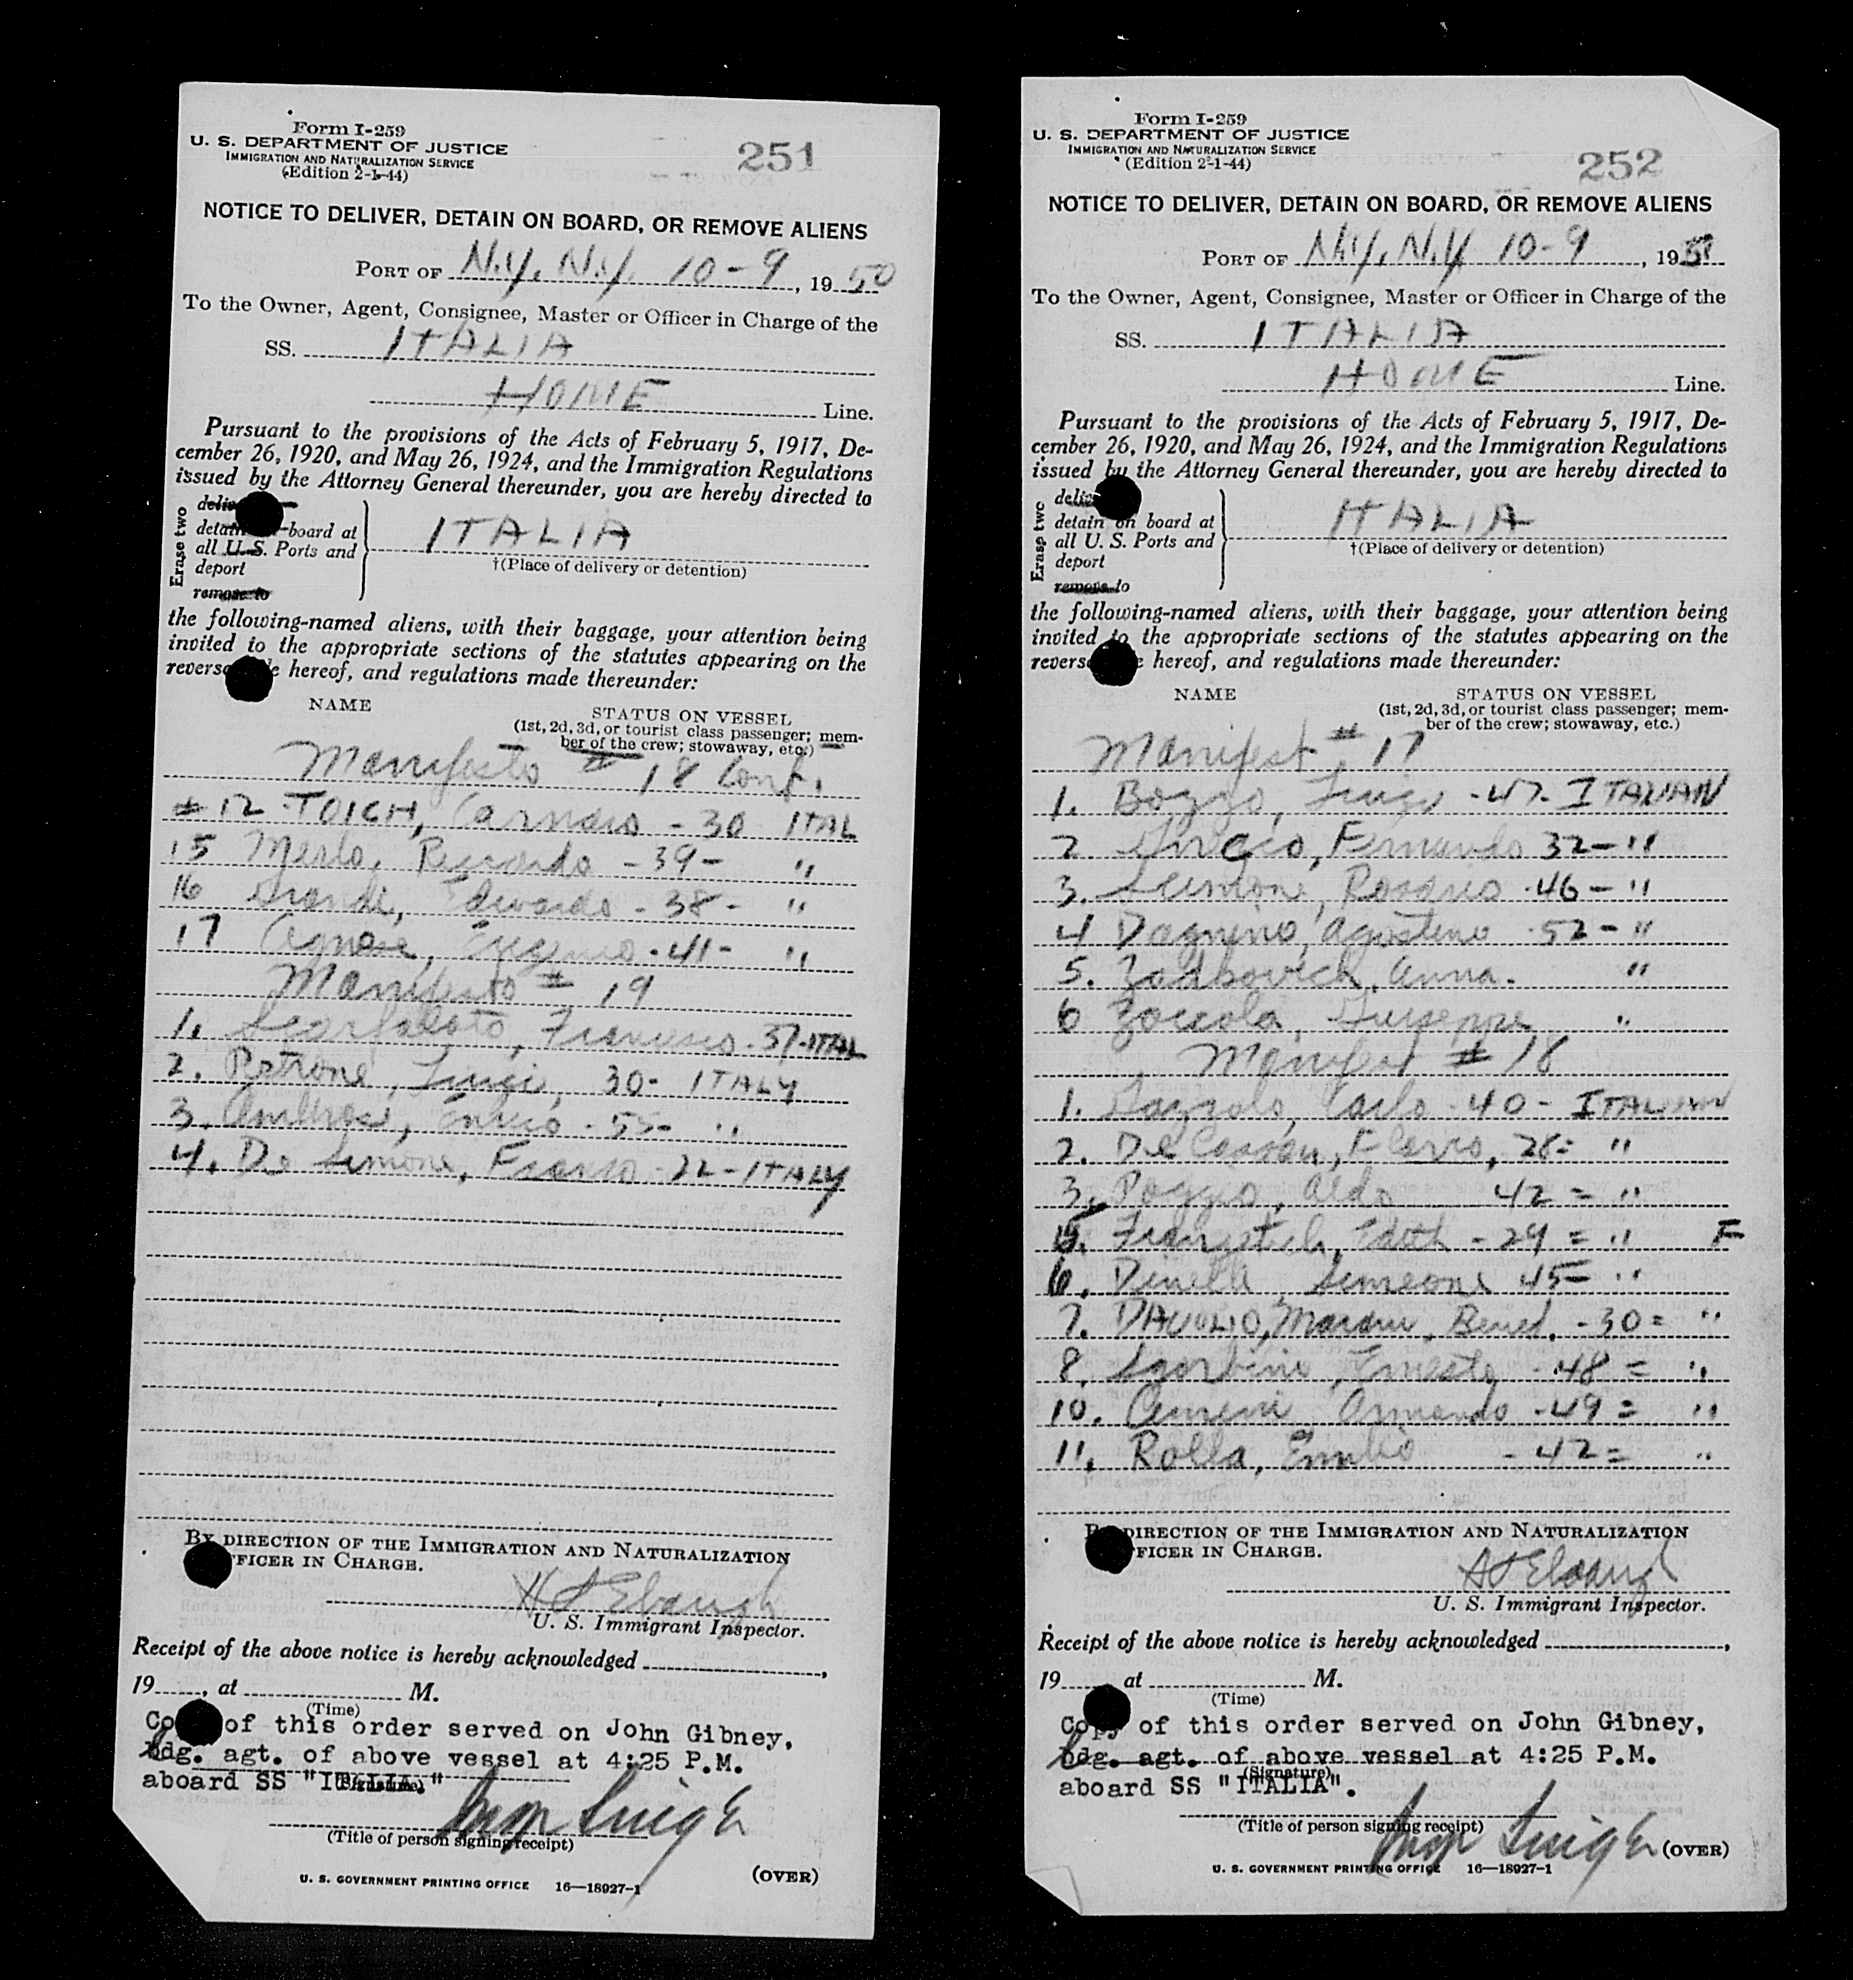 Form I-259
U. S. DEPARTMENT OF JUSTICE
IMMIGRATION AND NATURALIZATION SERVICE
(Edition 2-1-44)
251
NOTICE TO DELIVER, DETAIN ON BOARD, OR REMOVE ALIENS
PORT OF N.Y. N.Y. 10-9, 19 50
To the Owner, Agent, Consignee, Master or Officer in Charge of the
SS. ITALIA
HOME Line.
Pursuant to the provisions of the Acts of February 5, 1917, De-
cember 26, 1920, and May 26, 1924, and the Immigration Regulations
issued by the Attorney General thereunder, you are hereby directed to
Erase two
board at
all U. S. Ports and
deport
remove to
ITALIA
†(Place of delivery or detention)
the following-named aliens, with their baggage, your attention being
invited to the appropriate sections of the statutes appearing on the
hereof, and regulations made thereunder:
NAME
STATUS ON VESSEL
(1st, 2d, 3d, or tourist class passenger; mem-
ber of the crew; stowaway, etc.)
Manifesto # 18 Cont.
#12 TOICH, - 30 ITAL
15 Merlo, Riccardo - 39 - "
16 Grandi, Edwardo - 38 - "
17 Agnese, Eugenio - 41 - "
Manifesto # 19
1. Francesco - 37 - ITAL
2. Petrone, Luigi, 30 - ITALY
3. Enrico - 55 - "
4. De Simone, Franco - 22 - ITALY
BY DIRECTION OF THE IMMIGRATION AND NATURALIZATION
IN CHARGE.
H S Ebaugh
U. S. Immigrant Inspector.
Receipt of the above notice is hereby acknowledged ,
19 , at M.
(Time)
of this order served on John Gibney,
bdg. agt. of above vessel at 4:25 P.M.
aboard SS "ITALIA."
(Signature)
(Title of person signing receipt)
(OVER)
U. S. GOVERNMENT PRINTING OFFICE 16—18927-1
Form I-259
U. S. DEPARTMENT OF JUSTICE
IMMIGRATION AND NATURALIZATION SERVICE
(Edition 2-1-44)
252
NOTICE TO DELIVER, DETAIN ON BOARD, OR REMOVE ALIENS
PORT OF N.Y. N.Y. 10-9, 19 50
To the Owner, Agent, Consignee, Master or Officer in Charge of the
SS. ITALIA
HOME Line.
Pursuant to the provisions of the Acts of February 5, 1917, De-
cember 26, 1920, and May 26, 1924, and the Immigration Regulations
issued by the Attorney General thereunder, you are hereby directed to
Erase two
detain on board at
all U. S. Ports and
deport
remove to
ITALIA
†(Place of delivery or detention)
the following-named aliens, with their baggage, your attention being
invited to the appropriate sections of the statutes appearing on the
hereof, and regulations made thereunder:
NAME
STATUS ON VESSEL
(1st, 2d, 3d, or tourist class passenger; mem-
ber of the crew; stowaway, etc.)
Manifest # 17
1. Bozzo, Luigi - 47 - ITALIAN
2 Greco, Fernando 32 - "
3. Scimone, Rosario - 46 - "
4 Dagnino, Agostino - 52 - "
5. Anna - "
6 Zoccola, Giuseppe "
Manifest # 18
1. Carlo - 40 - ITALIAN
2. 28 = "
3. Poggio, Aldo 42 = "
5. Edith - 29 = " F
6. Simeone 45 = "
7. DAVOLIO, - 30 = "
8. Ernesto - 48 = "
10. Armando - 49 = "
11. Rolla, Emilio - 42 = "
DIRECTION OF THE IMMIGRATION AND NATURALIZATION
IN CHARGE.
H S Ebaugh
U. S. Immigrant Inspector.
Receipt of the above notice is hereby acknowledged ,
19 at M.
(Time)
Copy of this order served on John Gibney,
bdg. agt. of above vessel at 4:25 P.M.
(Signature)
aboard SS "ITALIA".
(Title of person signing receipt)
(OVER)
U. S. GOVERNMENT PRINTING OFFICE 16—18927-1